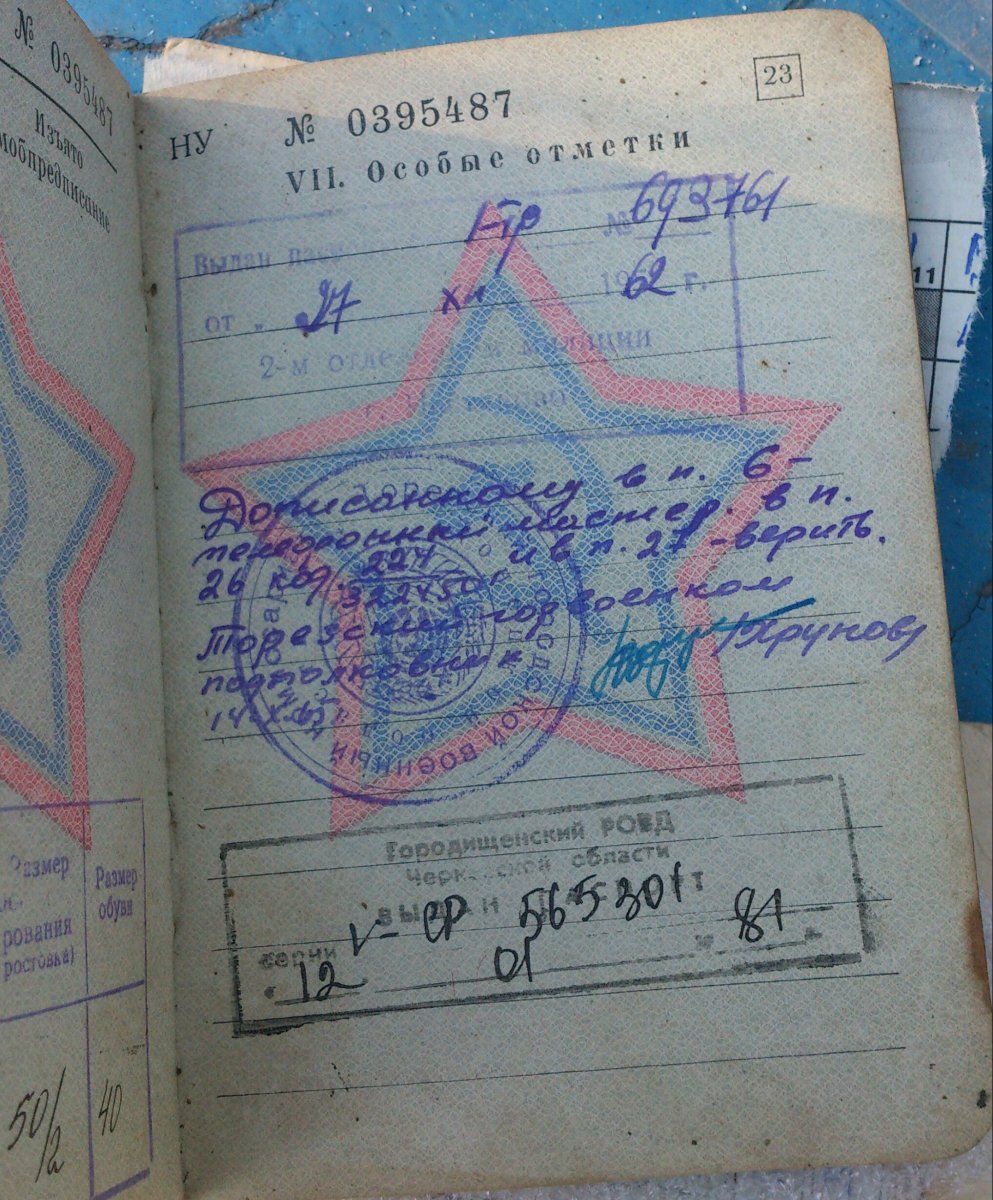 № 0395487
Изъято
мобпредписание
Размер
рования
ростовка)
Размер
обуви
50/2
40
23
НУ № 0395487
VII. Особые отметки
Выдан № 693761
от „ 27 XII 1962 г.
2-м отде милиции
Дописанному в п. 6 -
телефонный мастер. в п.
26 код. 224 и в п. 27 - верить.
322450
Торезский горвоенком
подполковник Трунов
14.X.65
Городищенский РОВД
Черк сской области
ВЫДАН ПАСПОРТ
серии V-СР 565301
12 01 81